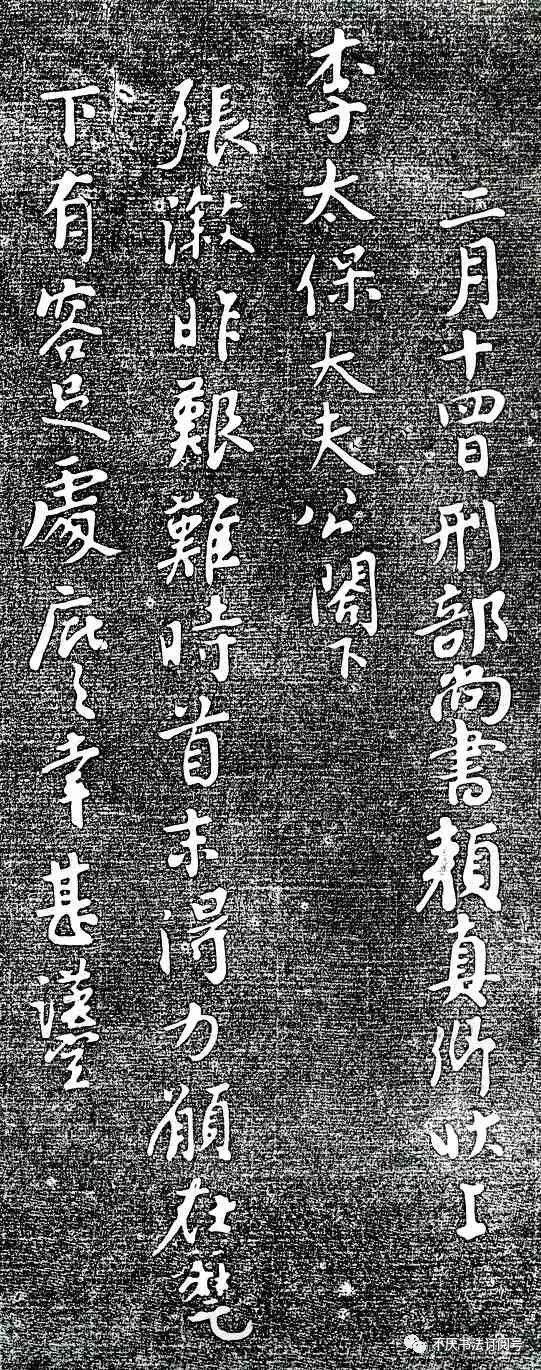 二月十四日刑部尚書顏真卿狀上
李太保大夫公閣下
張溆昨艱難時首末得力願在麾
下有容足處庇之幸甚謹空
不厌书法订阅号